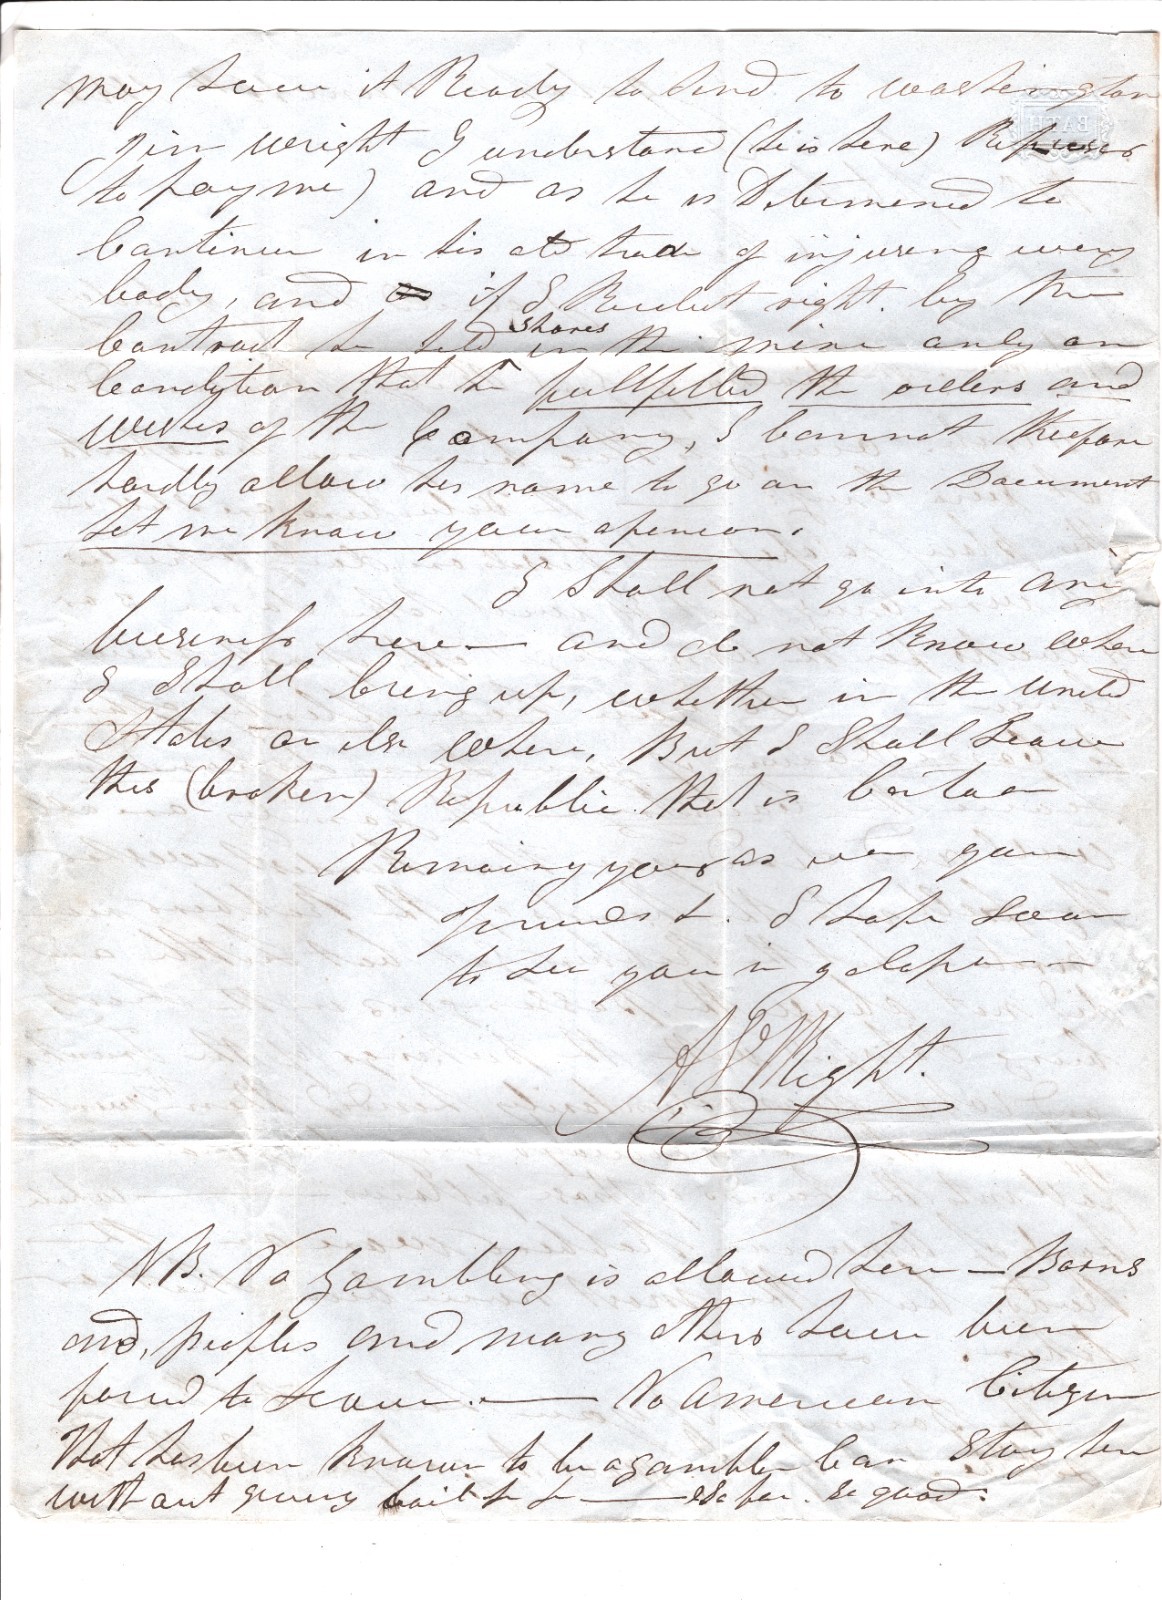 may have it Ready to send to washington
Jim Wright I understand (he is here) Refuses
to pay me) and as he is Determened to
Continue in his old trade of injuring every
body, and if I Recolect right. by the
Contract he held shares in the mine only on
Condytion that he fullfilled the orders and
wishes of the Company, I cannot therfore
hardly allow his name to go on the Document
let me know your openion.
I Shall not go into any
buseness here — and do not know where
I Shall bring up, whether in the United
States or else where, But I Shall Leave
this (broken) Republic that is Certain
Remaing yours as ever your
friend &. I hope soon
to see you in Jalapa —
A J Wright.
N.B. No Gambling is allowed here — Barns
and, peoples and many others have been
forced to leave. — No American Citizen
that has been known to be a gambler can stay here
without giving bail &c &c — So far. so good.
BATH